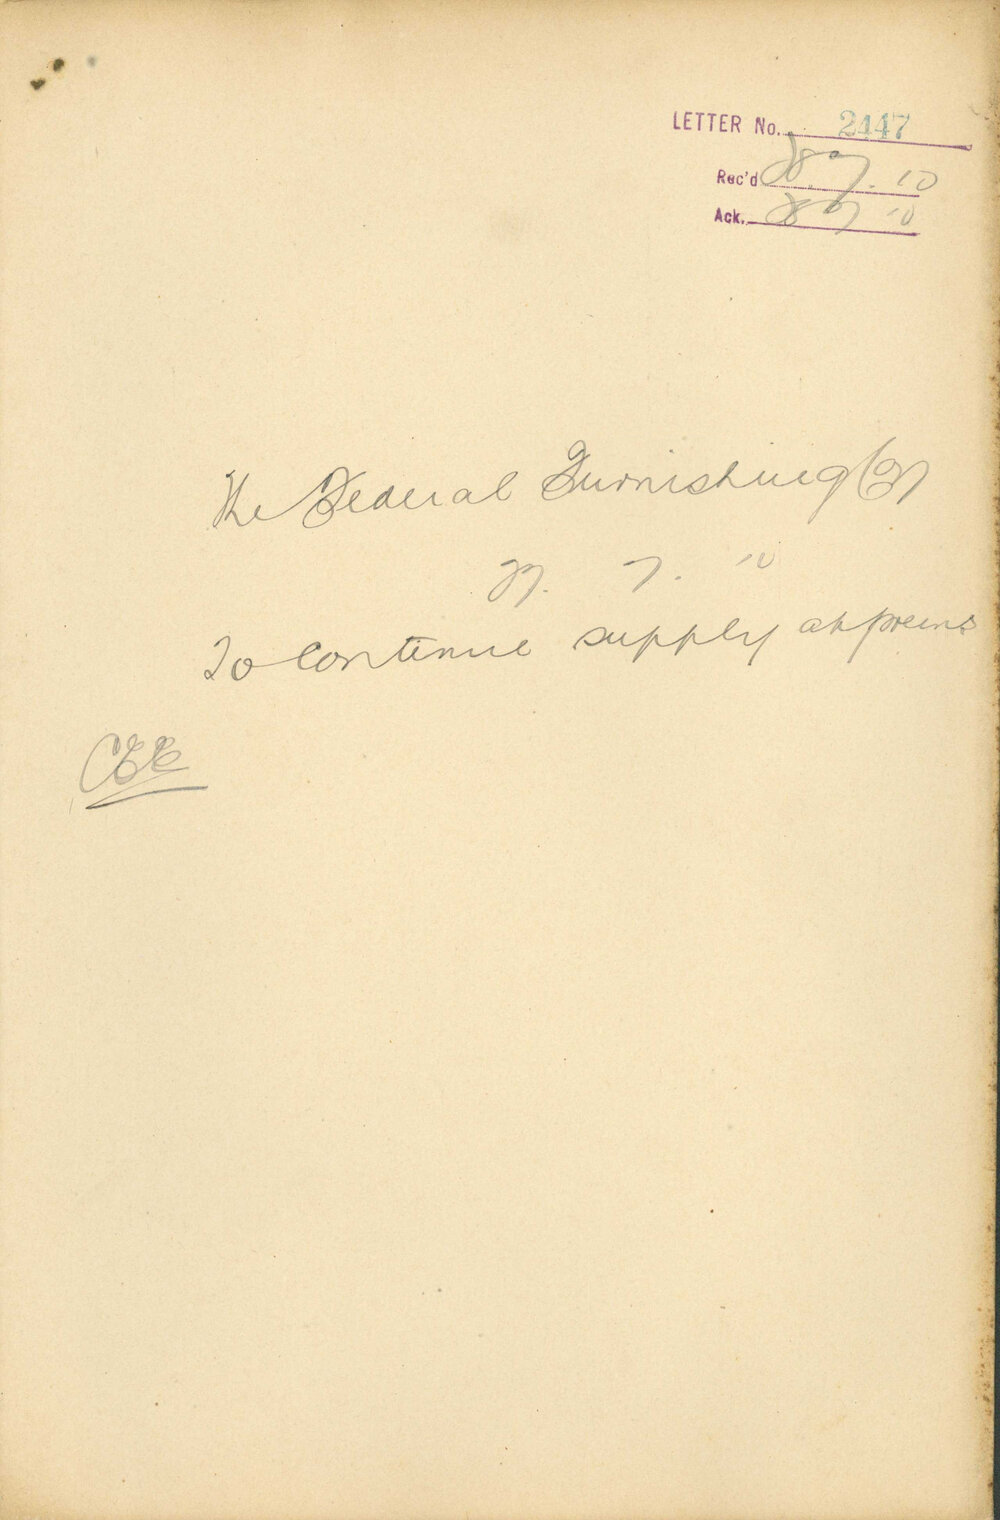 LETTER No. 2447
Rec'd 28 7. 10
Ack. 28 7 10
The Federal Furnishing Coy
27. 7. 10
To Continue supply ahpmens